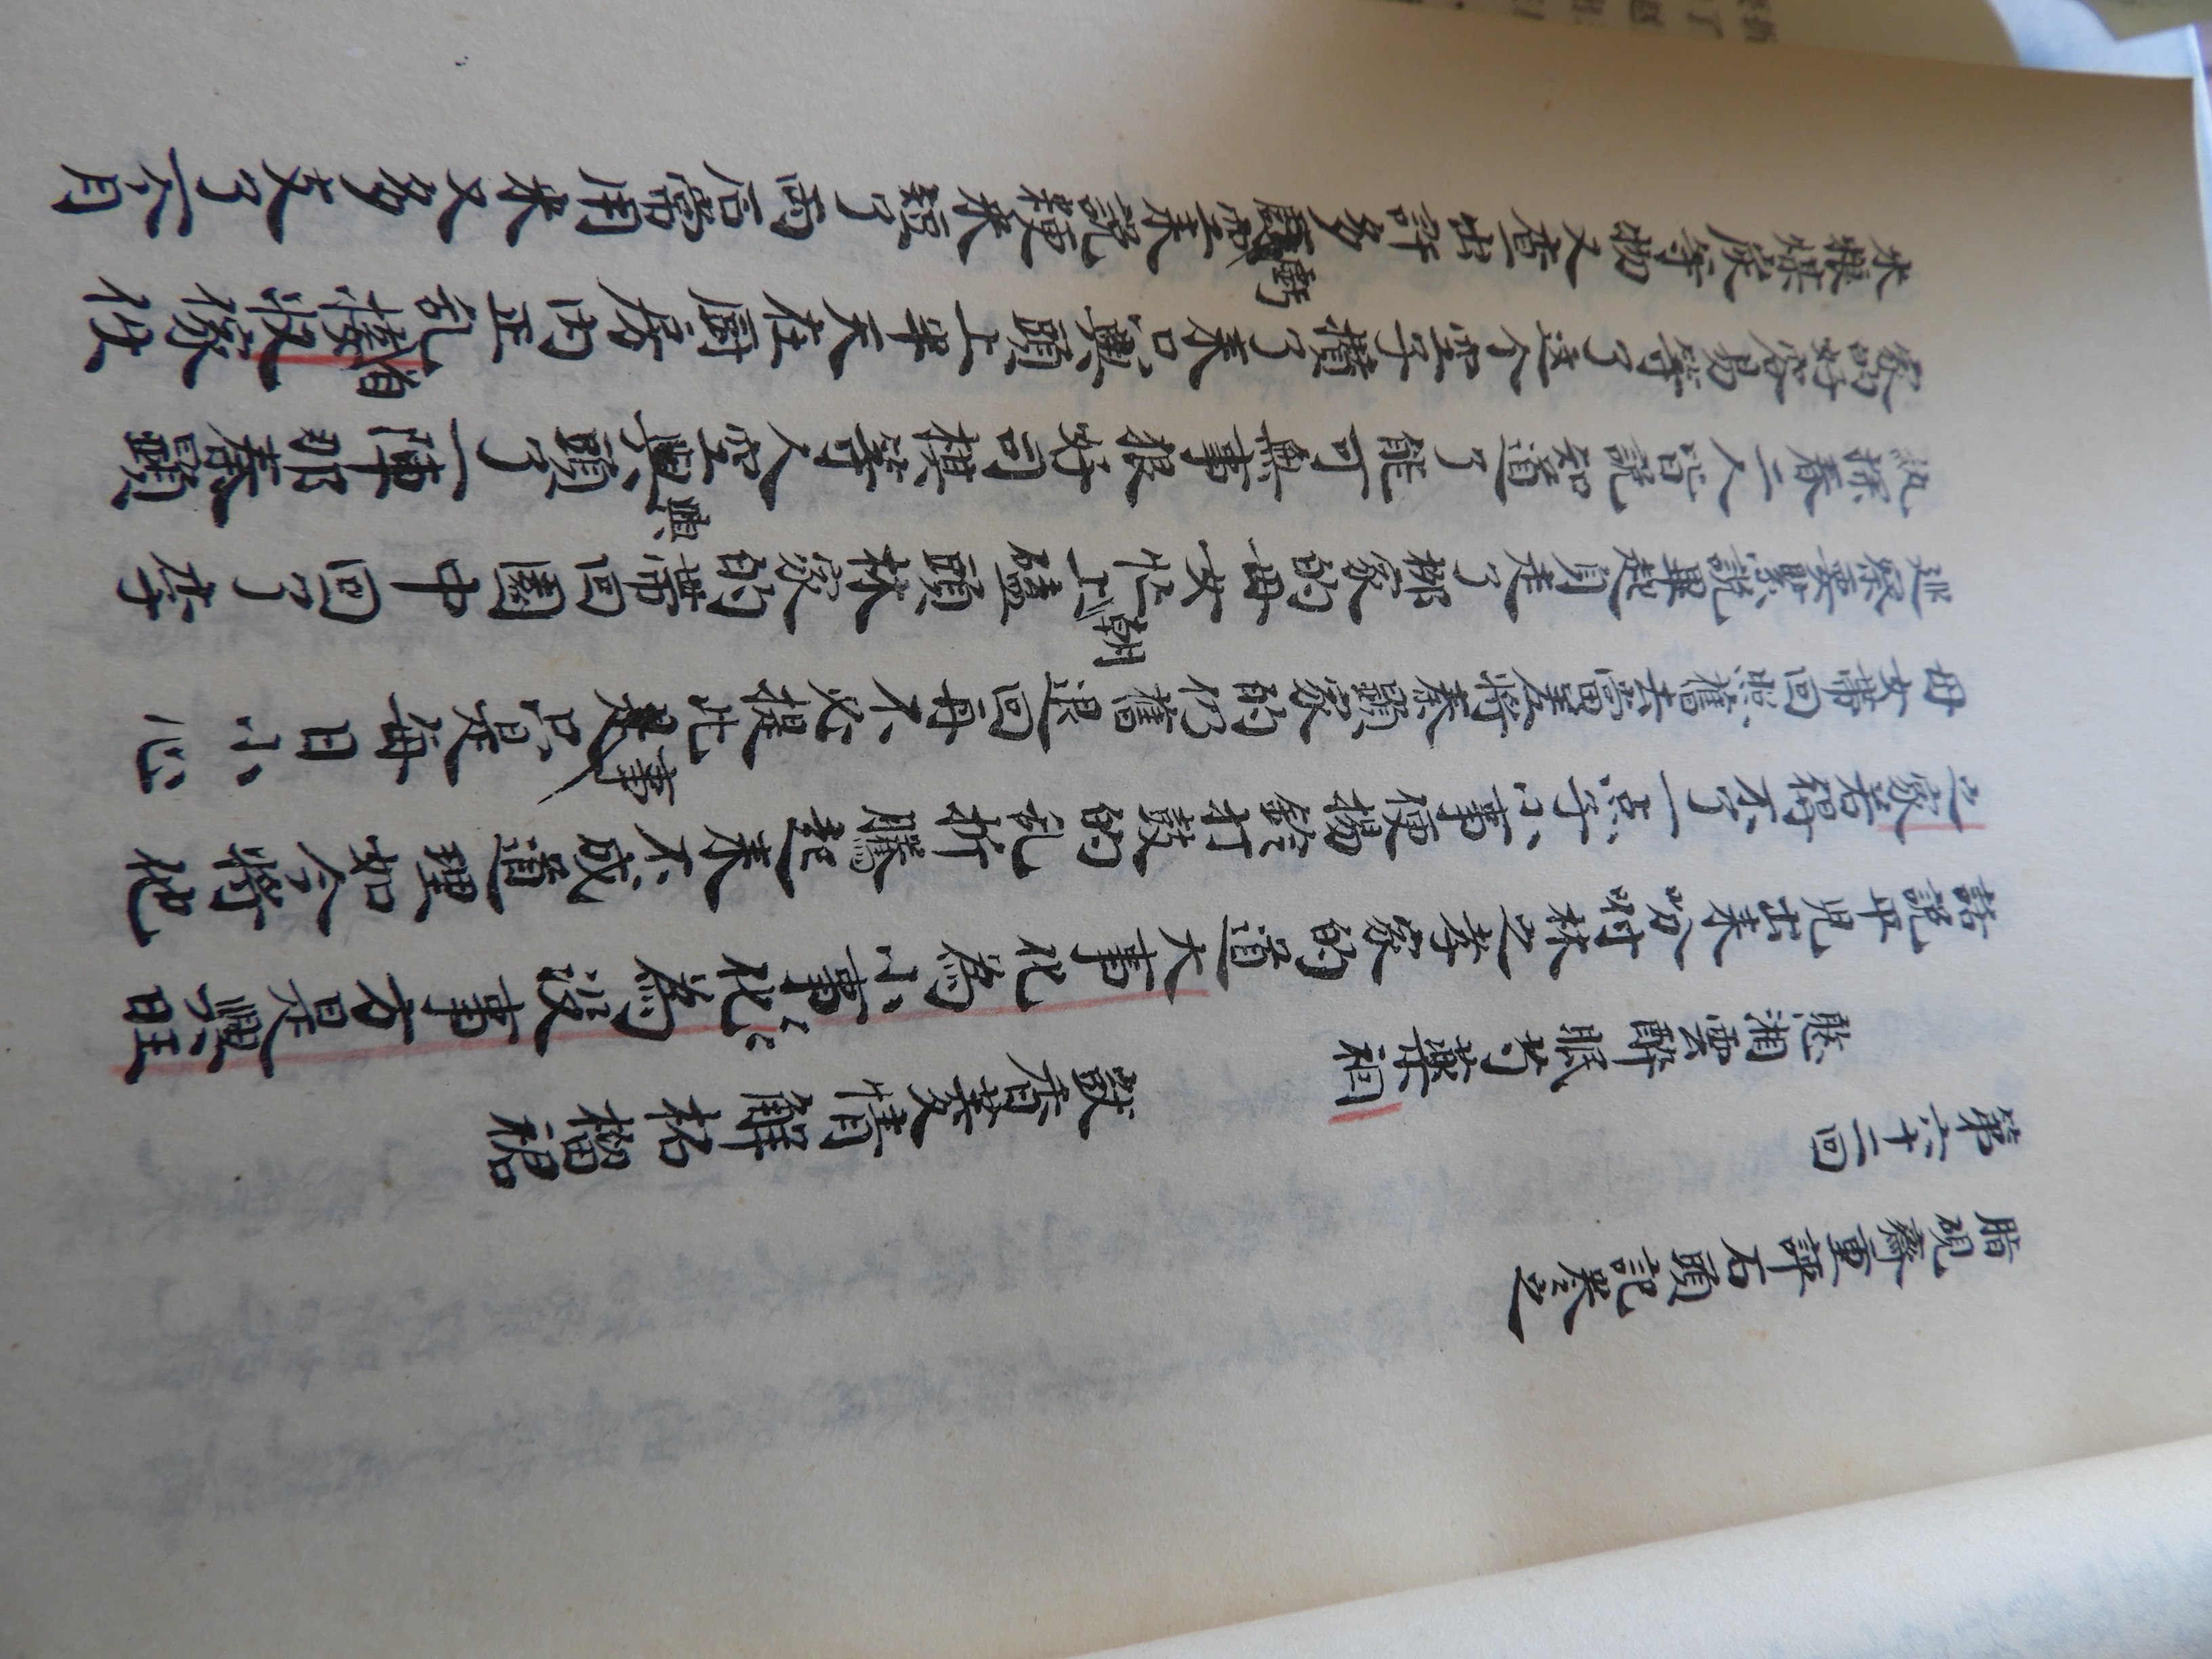 脂硯齋重評石頭記卷之
第六十二回
憨湘雲醉眠芍藥裀 獃香菱情解柘榴裙
話說平兒出來吩咐林之孝家的道大事化為小事ミ化為沒事方是興旺
之家若得不了一点子小事便揚鈴打鼓的乱折騰起來不成道理如今將他
母女帶回照舊去當差將秦顯家的仍舊退回再不必提此事只是每日小心
巡察要緊說畢起身走了柳家的母女忙朝上磕頭林家的帶回園中回了李
紈探春二人皆說知道了能可無事狠好司棋等人空興頭了一陣那秦顯
家的好容易等了這个空子攢了來只興頭上半天在厨房內正乱着接收家伙
米粮煤炭等物又查出許多虧空來說粳米短了兩石常用米又多支了一个月